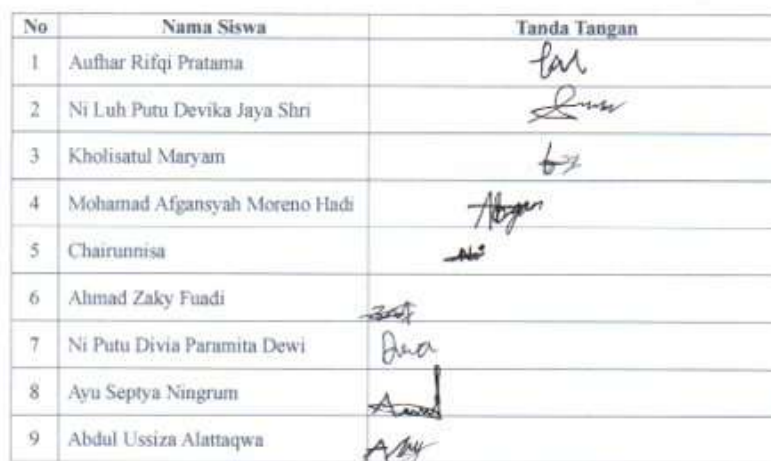 No Nama Siswa Tanda Tangan
1 Aufhar Rifqi Pratama
2 Ni Luh Putu Devika Jaya Shri
3 Kholisatul Maryam
4 Mohamad Afgansyah Moreno Hadi
5 Chairunnisa
6 Ahmad Zaky Fuadi
7 Ni Putu Divia Paramita Dewi
8 Ayu Septya Ningrum
9 Abdul Ussiza Alattaqwa